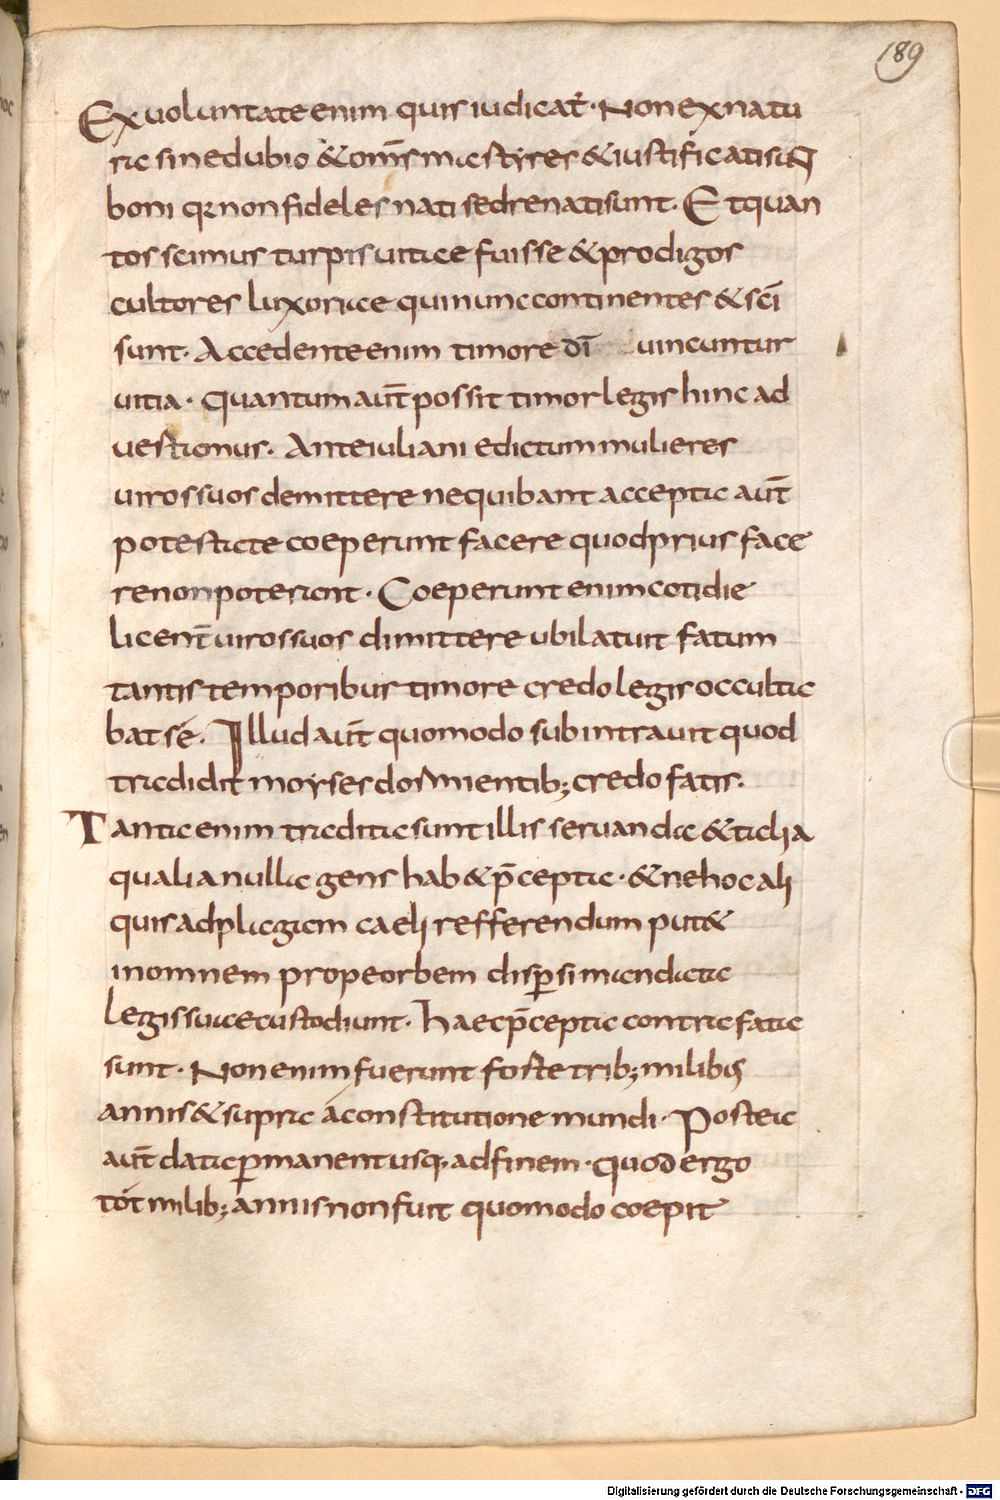 189
Ex uoluntate enim quis iudicat̄· Non ex natu
ra sine dubio & om̄s martyres & iustificati suɴ̄
boni qr non fideles nati sed renati sunt. Et quan
tos scimus turpis uitae fuisse & prodigos
cultores luxoriae qui nunc continentes & sc̄i
sunt. Accedente enim timore dī uincuntur
uitia. Quantum aut̄ possit timor legis hinc ad
uertimus. Ante iuliani edictum mulieres
uiros suos demittere nequibant accepta aut̄
potestate coeperunt facere quod prius face
re non poterant. Coeperunt enim cotidie
licent̄ uiros suos dimittere ubi latuit fatum
tantis temporibus timore credo legis occulta
bat sé. Illud aut̄ quomodo subintrauit quod
tradidit moyses dormientib; credo fatis.
Tanta enim tradita sunt illis seruanda & talia
qualia nulla gens hab& p̄cepta. & ne hoc ali
quis ad plagam caeli refferendum put&
in omnem prope orbem disp̱si mandata
legis suae custodiunt. haec p̄cepta contra fata
sunt. Non enim fuerunt forte trib; milibus
annis & supra á constitutione mundi. Postea
aut̄ data p̱manent usq; ad finem. quod ergo
tót milib; annis non fuit quomodo coepit
Digitalisierung gefördert durch die Deutsche Forschungsgemeinschaft - DFG